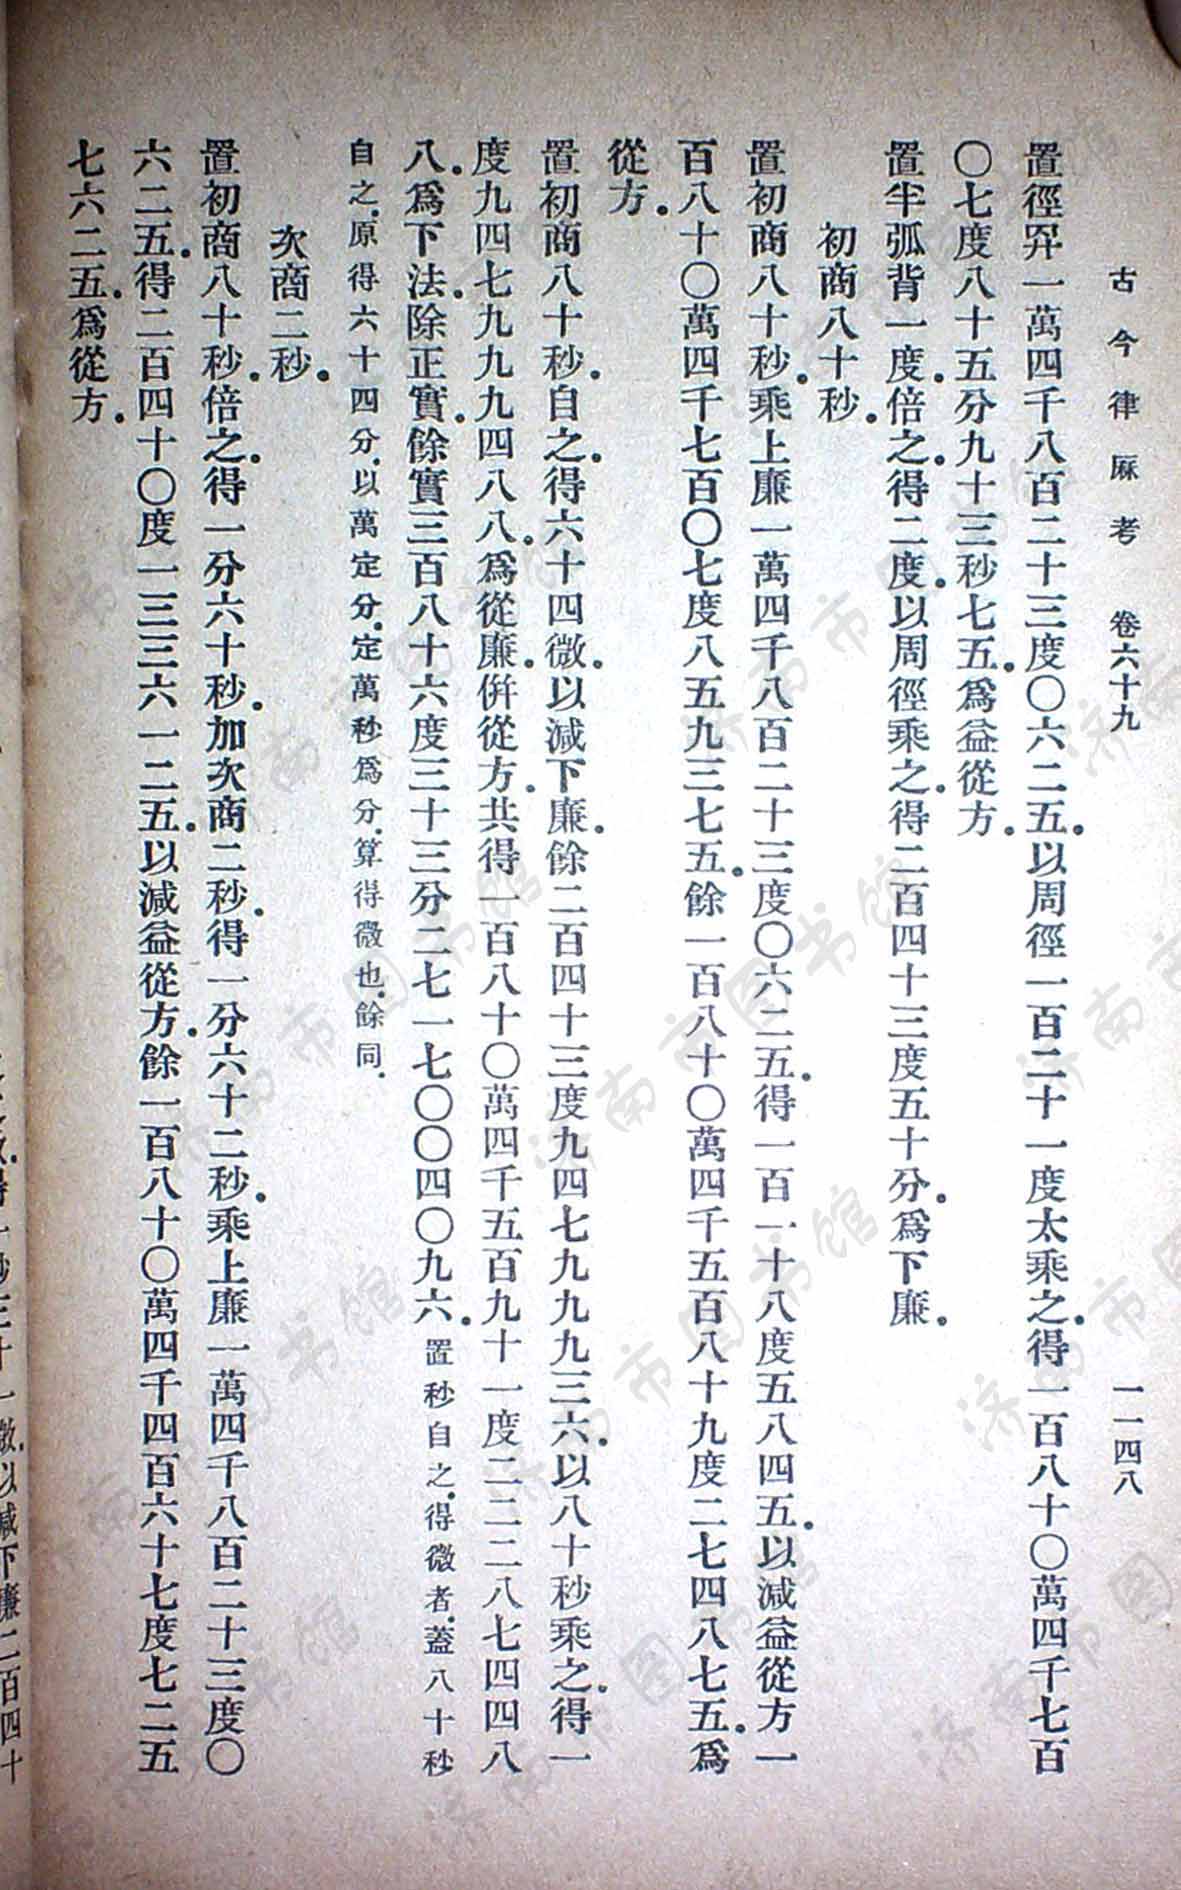 古今律厤考　卷六十九　一一四八
置徑羃一萬四千八百二十三度〇六二五．以周徑一百二十一度太乘之．得一百八十〇萬四千七百
〇七度八十五分九十三秒七五．爲益從方．
置半弧背一度．倍之．得二度．以周徑乘之．得二百四十三度五十分．爲下廉．
初商八十秒．
置初商八十秒．乘上廉一萬四千八百二十三度〇六二五．得一百一十八度五八四五．以減益從方一
百八十〇萬四千七百〇七度八五九三七五．餘一百八十〇萬四千五百八十九度二七四八七五．爲
從方．
置初商八十秒．自之．得六十四微．以減下廉．餘二百四十三度九四七九九九三六．以八十秒乘之．得一
度九四七九九九四八八．爲從廉．併從方．共得一百八十〇萬四千五百九十一度二二二八七四四八
八．爲下法．除正實．餘實三百八十六度三十三分二七一七〇〇四〇九六．置秒自之．得微者．蓋八十秒
自之．原得六十四分．以萬定分．定萬秒爲分．算得微也．餘同．
次商二秒．
置初商八十秒．倍之．得一分六十秒．加次商二秒．得一分六十二秒．乘上廉一萬四千八百二十三度〇
六二五．得二百四十〇度一三三六一二五．以減益從方．餘一百八十〇萬四千四百六十七度七二五
七六二五．爲從方．
以減下廉二百四十